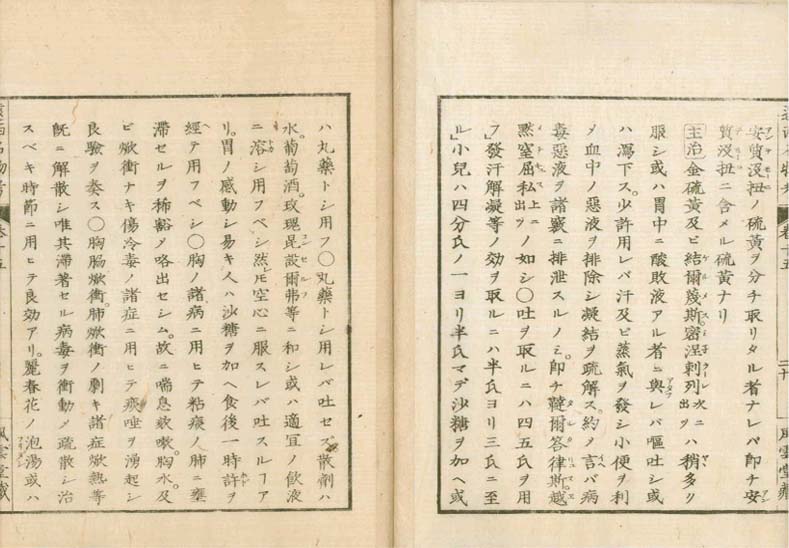 安質没扭ノ硫黄ヲ分チ取リタル者ナレバ即チ安
質没扭ニ含メル硫黄ナリ
主治 金硫黄及ビ結爾蔑斯密涅剌列次ニ出ヅハ稍多ク
服シ或ハ胃中ニ酸敗液アル者ニ與レバ嘔吐シ或
ハ瀉下ス。少許用レバ汗及ビ蒸氣ヲ發シ小便ヲ利
メ血中ノ惡液ヲ排除シ凝結ヲ疏解ス。約メ言バ病
毒惡液ヲ諸竅ニ排泄スルノミ。即チ韃爾答律斯。越
黙窒屈私上ニ出ヅノ如シ○吐ヲ取ルニハ四五氏ヲ用
フ」發汗解凝等ノ効ヲ取ルニハ半氏ヨリ三氏ニ至
ル」小兒ハ四分氏ノ一ヨリ半氏マデ沙糖ヲ加ヘ或
二十
風雲堂藏
ハ丸藥トシ用フ○丸藥トシ用レバ吐セズ散劑ハ
水。葡萄酒。玫瑰昆設爾弗等ニ和シ或ハ適宜ノ飲液
ニ溶シ用フベシ然ドモ空心ニ服スレバ吐スルコアリ
リ。胃ノ感動シ易キ人ハ沙糖ヲ加ヘ食後一時許ヲ
經テ用フベシ○胸ノ諸病ニ用ヒテ粘痰ノ肺ニ壅
滯セルヲ稀豁メ咯出セシム。故ニ喘息欬嗽。胸水。及
ビ焮衝ナキ傷冷毒ノ諸症ニ用ヒテ痰唾ヲ湧起シ
良驗ヲ奏ス○胸膓焮衝。肺焮衝ノ劇キ諸症焮熱等
既ニ解散シ唯其滯著セル病毒ヲ衝動メ疏散シ治
スベキ時節ニ用ヒテ良効アリ。麗春花ノ泡湯或ハ
卷十五
風雲堂藏